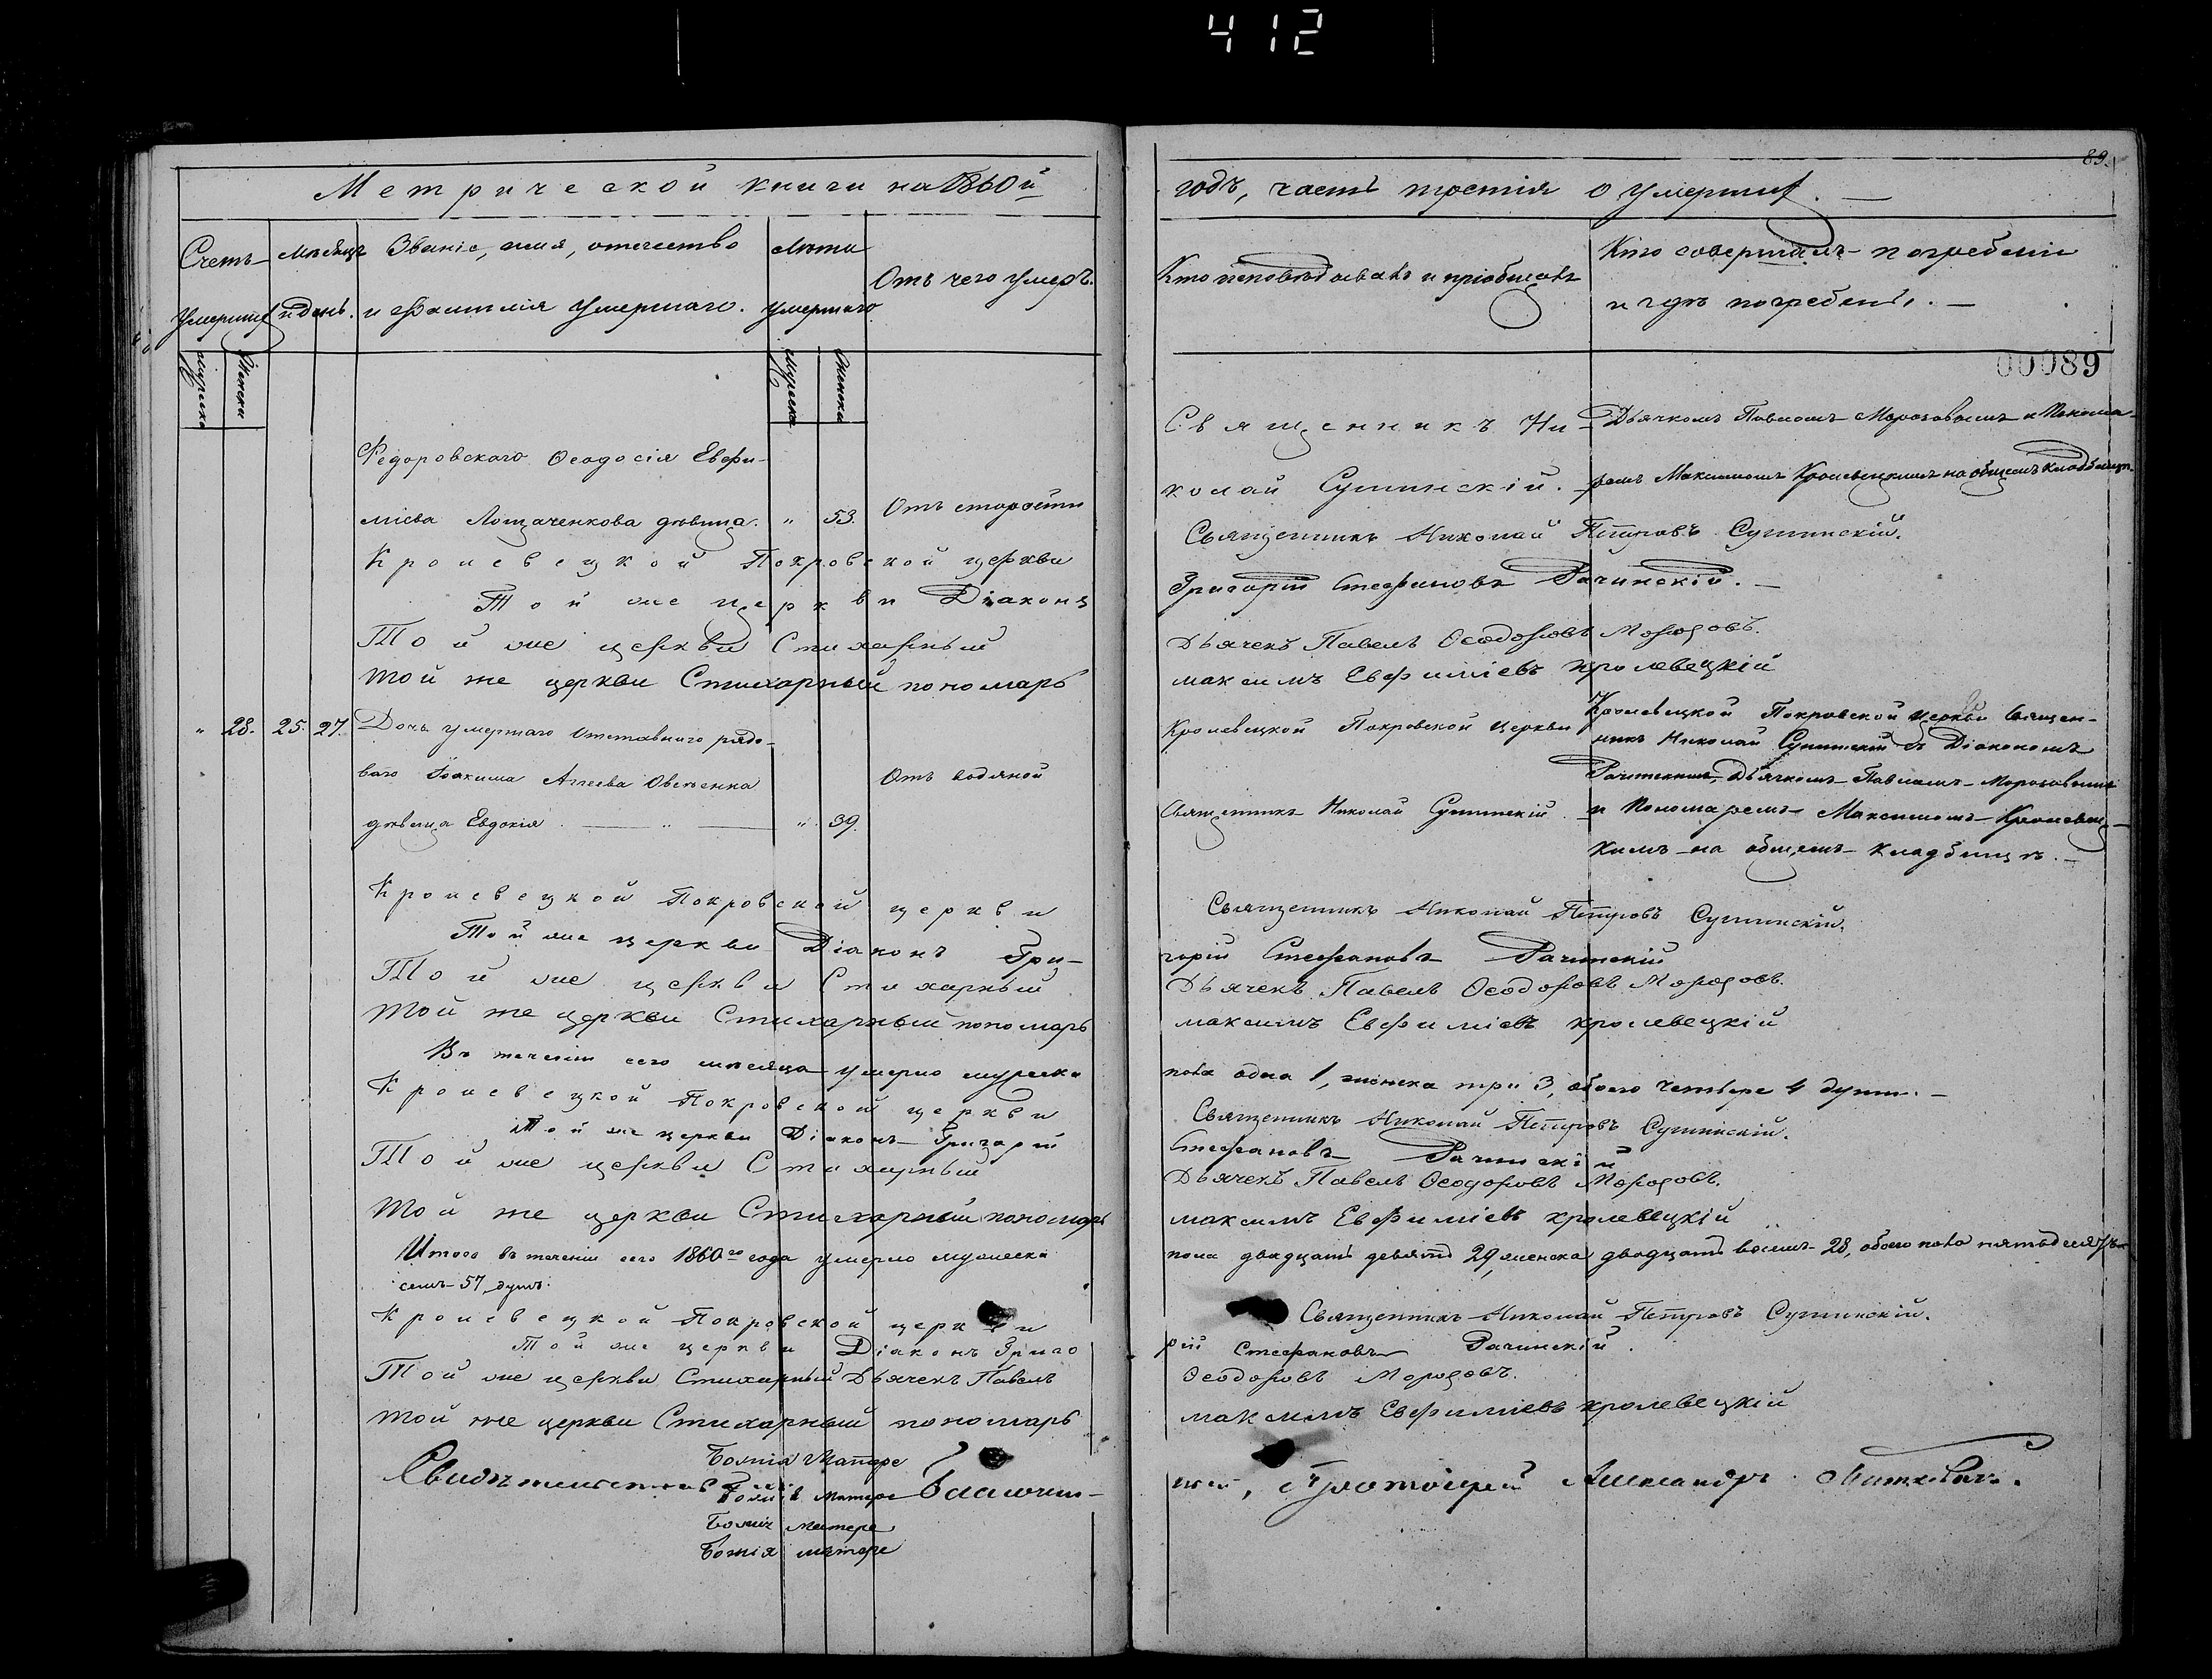 412
89.
Метрической книги на 1860й
годъ, часть третія о умершихъ.
Счетъ умершихъ
Мѣсяцъ и день.
Званіе, имя, отечество и фамилія умершаго.
Лѣта умершаго
Отъ чего умеръ.
Кто исповѣдывалъ и пріобщалъ
Кто совершалъ погребеніе
и гдѣ погребены.
Мужеска
Женски
Мужеска
Женска
00089
Федоровскаго Феодосія Евфи-
міева Лотаченкова дѣвица. " 53. Отъ старости
Священникъ Ни-
колай Сушинскій.
Дьячкомъ Павломъ Морозовымъ и Понома-
ремъ Максимомъ Кролевецкимъ на общемъ кладбищѣ.
Кролевецкой Покровской церкви
Священникъ Николай Петровъ Сушинскій.
Той же церкви Діаконъ
Григорій Стефановъ Рачинскій.
Той же церкви Стихарный
Дьячекъ Павелъ Феодоровъ Морозовъ.
Той же церкви Стихарный пономарь
Максимъ Евфиміевъ Кролевецкій
" 28. 25. 27. Дочь умершаго отставнаго рядо-
ваго Іоакима Агеева Овсѣенка
дѣвица Евдокія " 39.
Отъ водяной
Кролевецкой Покровской церкви
Священникъ Николай Сушинскій.
Кролевецкой Покровской церкви Священ-
никъ Николай Сушинскій съ Діакономъ
Рачинскимъ, Дьячкомъ Павломъ Морозовымъ
и Пономаремъ Максимомъ Кролевец-
кимъ на общемъ кладбищѣ.
Кролевецкой Покровской церкви
Священникъ Николай Петровъ Сушинскій.
Той же церкви Діаконъ Гри-
горій Стефановъ Рачинскій
Той же церкви Стихарный
Дьячекъ Павелъ Феодоровъ Морозовъ.
Той же церкви Стихарный пономарь
Максимъ Евфиміевъ Кролевецкій
Въ теченіи сего мѣсяца умерло мужеска
пола одна 1, женска три 3, обоего четыре 4 души.
Кролевецкой Покровской церкви
Священникъ Николай Петровъ Сушинскій.
Той же церкви Діаконъ Григорій
Стефановъ Рачинскій
Той же церкви Стихарный
Дьячекъ Павелъ Феодоровъ Морозовъ.
Той же церкви Стихарный пономарь
Максимъ Евфиміевъ Кролевецкій
Итого въ теченіи сего 1860го года умерло мужеска
пола двадцать девять 29, женска двадцать восемь 28, обоего пола пятьдесятъ
семь 57 душъ.
Кролевецкой Покровской церкви
Священникъ Николай Петровъ Сушинскій.
Той же церкви Діаконъ Григо
рій Стефановъ Рачинскій.
Той же церкви Стихарный Дьячекъ Павелъ
Феодоровъ Морозовъ.
Той же церкви Стихарный пономарь
Максимъ Евфиміевъ Кролевецкій
Божія Матере
Свидѣтельствовалъ Благочин-
ный, Протоіерей Александръ
Божія Матере
Божія Матере
Божія Матере